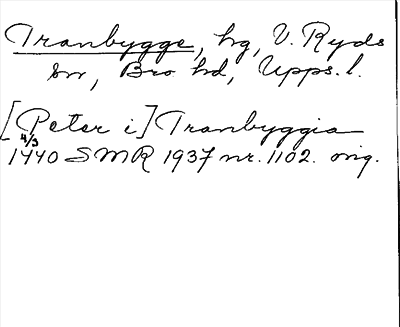 Tranbygge, hg, V. Ryds
sn, Bro hd, Upps. l.
[Peter i] Tranbyggia
4/3
1440 SMR 1937 nr. 1102. orig.